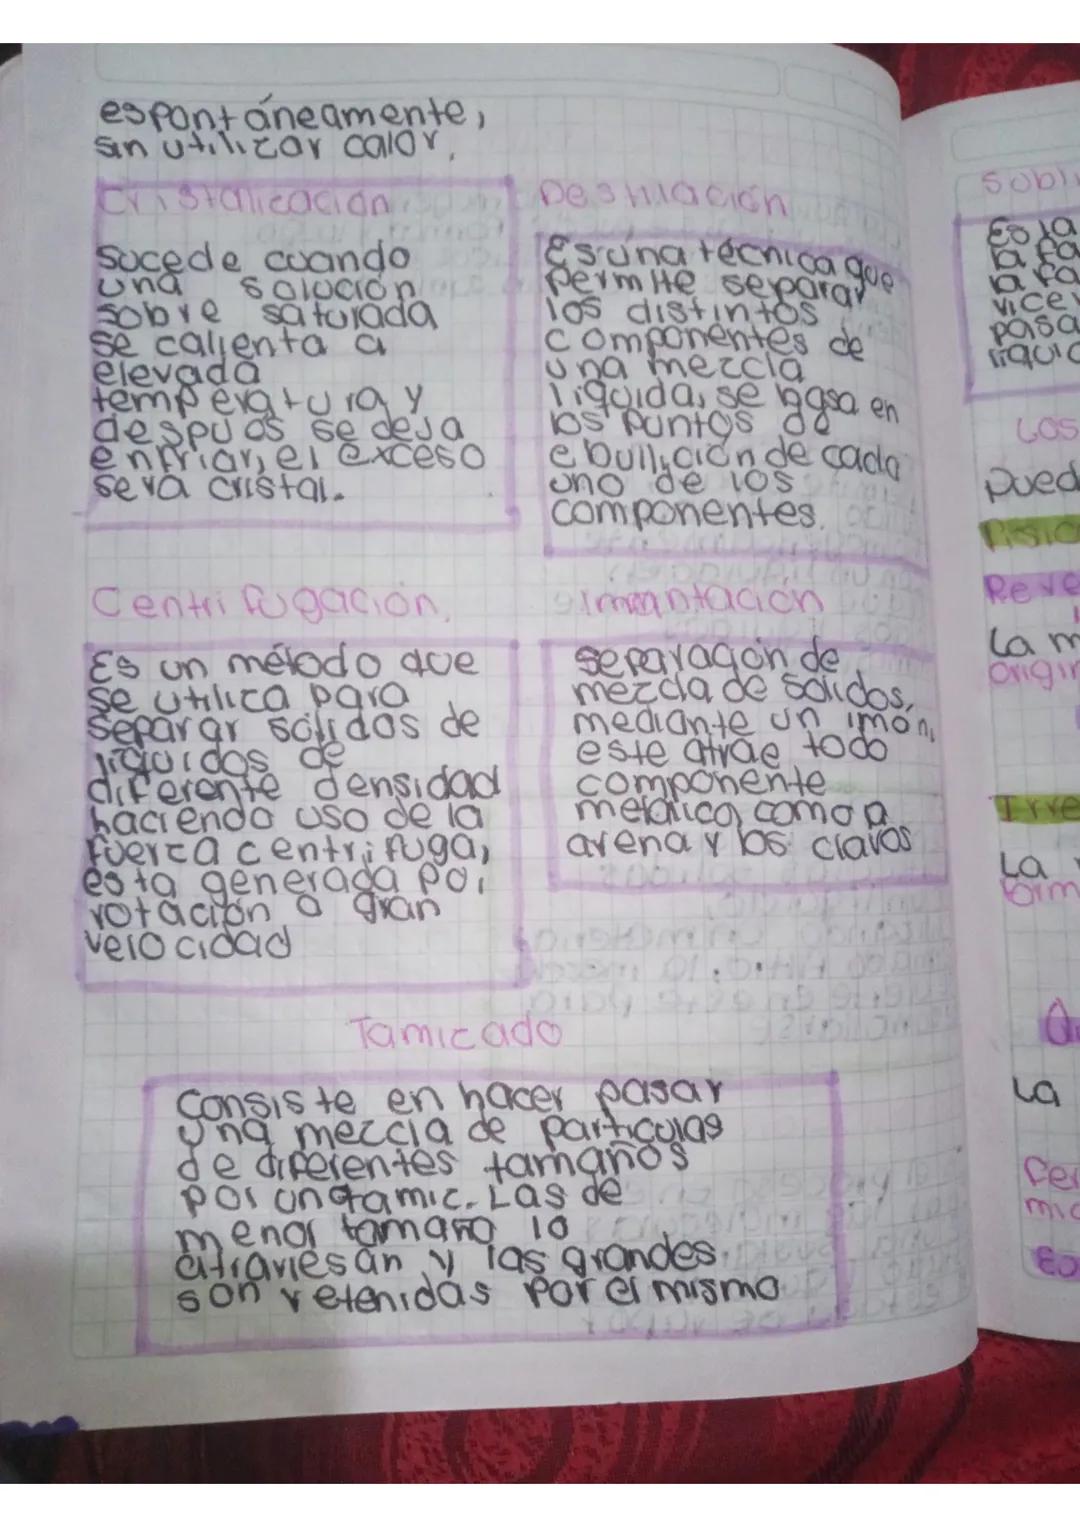 espontáneamente,
sin utilizar calor.
Cristalicación
sucede cuando
una solución
sobre saturada
se calienta a
elevada
temperatura y
despuós se deja
enfriar, el exceso
se va cristal.
Destilación
Es una técnica que
permite separar
los distintos
componentes de
una mezcla
liquida, se basa en
los puntos de
ebullición de cada
uno de los
componentes.
Centrifugación.
Es un método que
se utilica para
separar sólidos de
liquidos de
diferente densidad
haciendo uso de la
fuerza centrifuga,
esta generada por
rotación a gran
velocidad
Imantación
separación de
mezcla de solidos,
mediante un imón,
este atrae todo
componente
metálico, como a
arena y los clavos
Tamicado
Consiste en hacer pasar
una mezcla de particulas
de diferentes tamaños
por un tamic. Las de
menor tamaño lo
atraviesan y las grandes
son retenidas por el mismo
Es la
la fa
la fa
vice
pasa
liquid
Los
pued
Reve
La m
origin
Irre
La
form
La